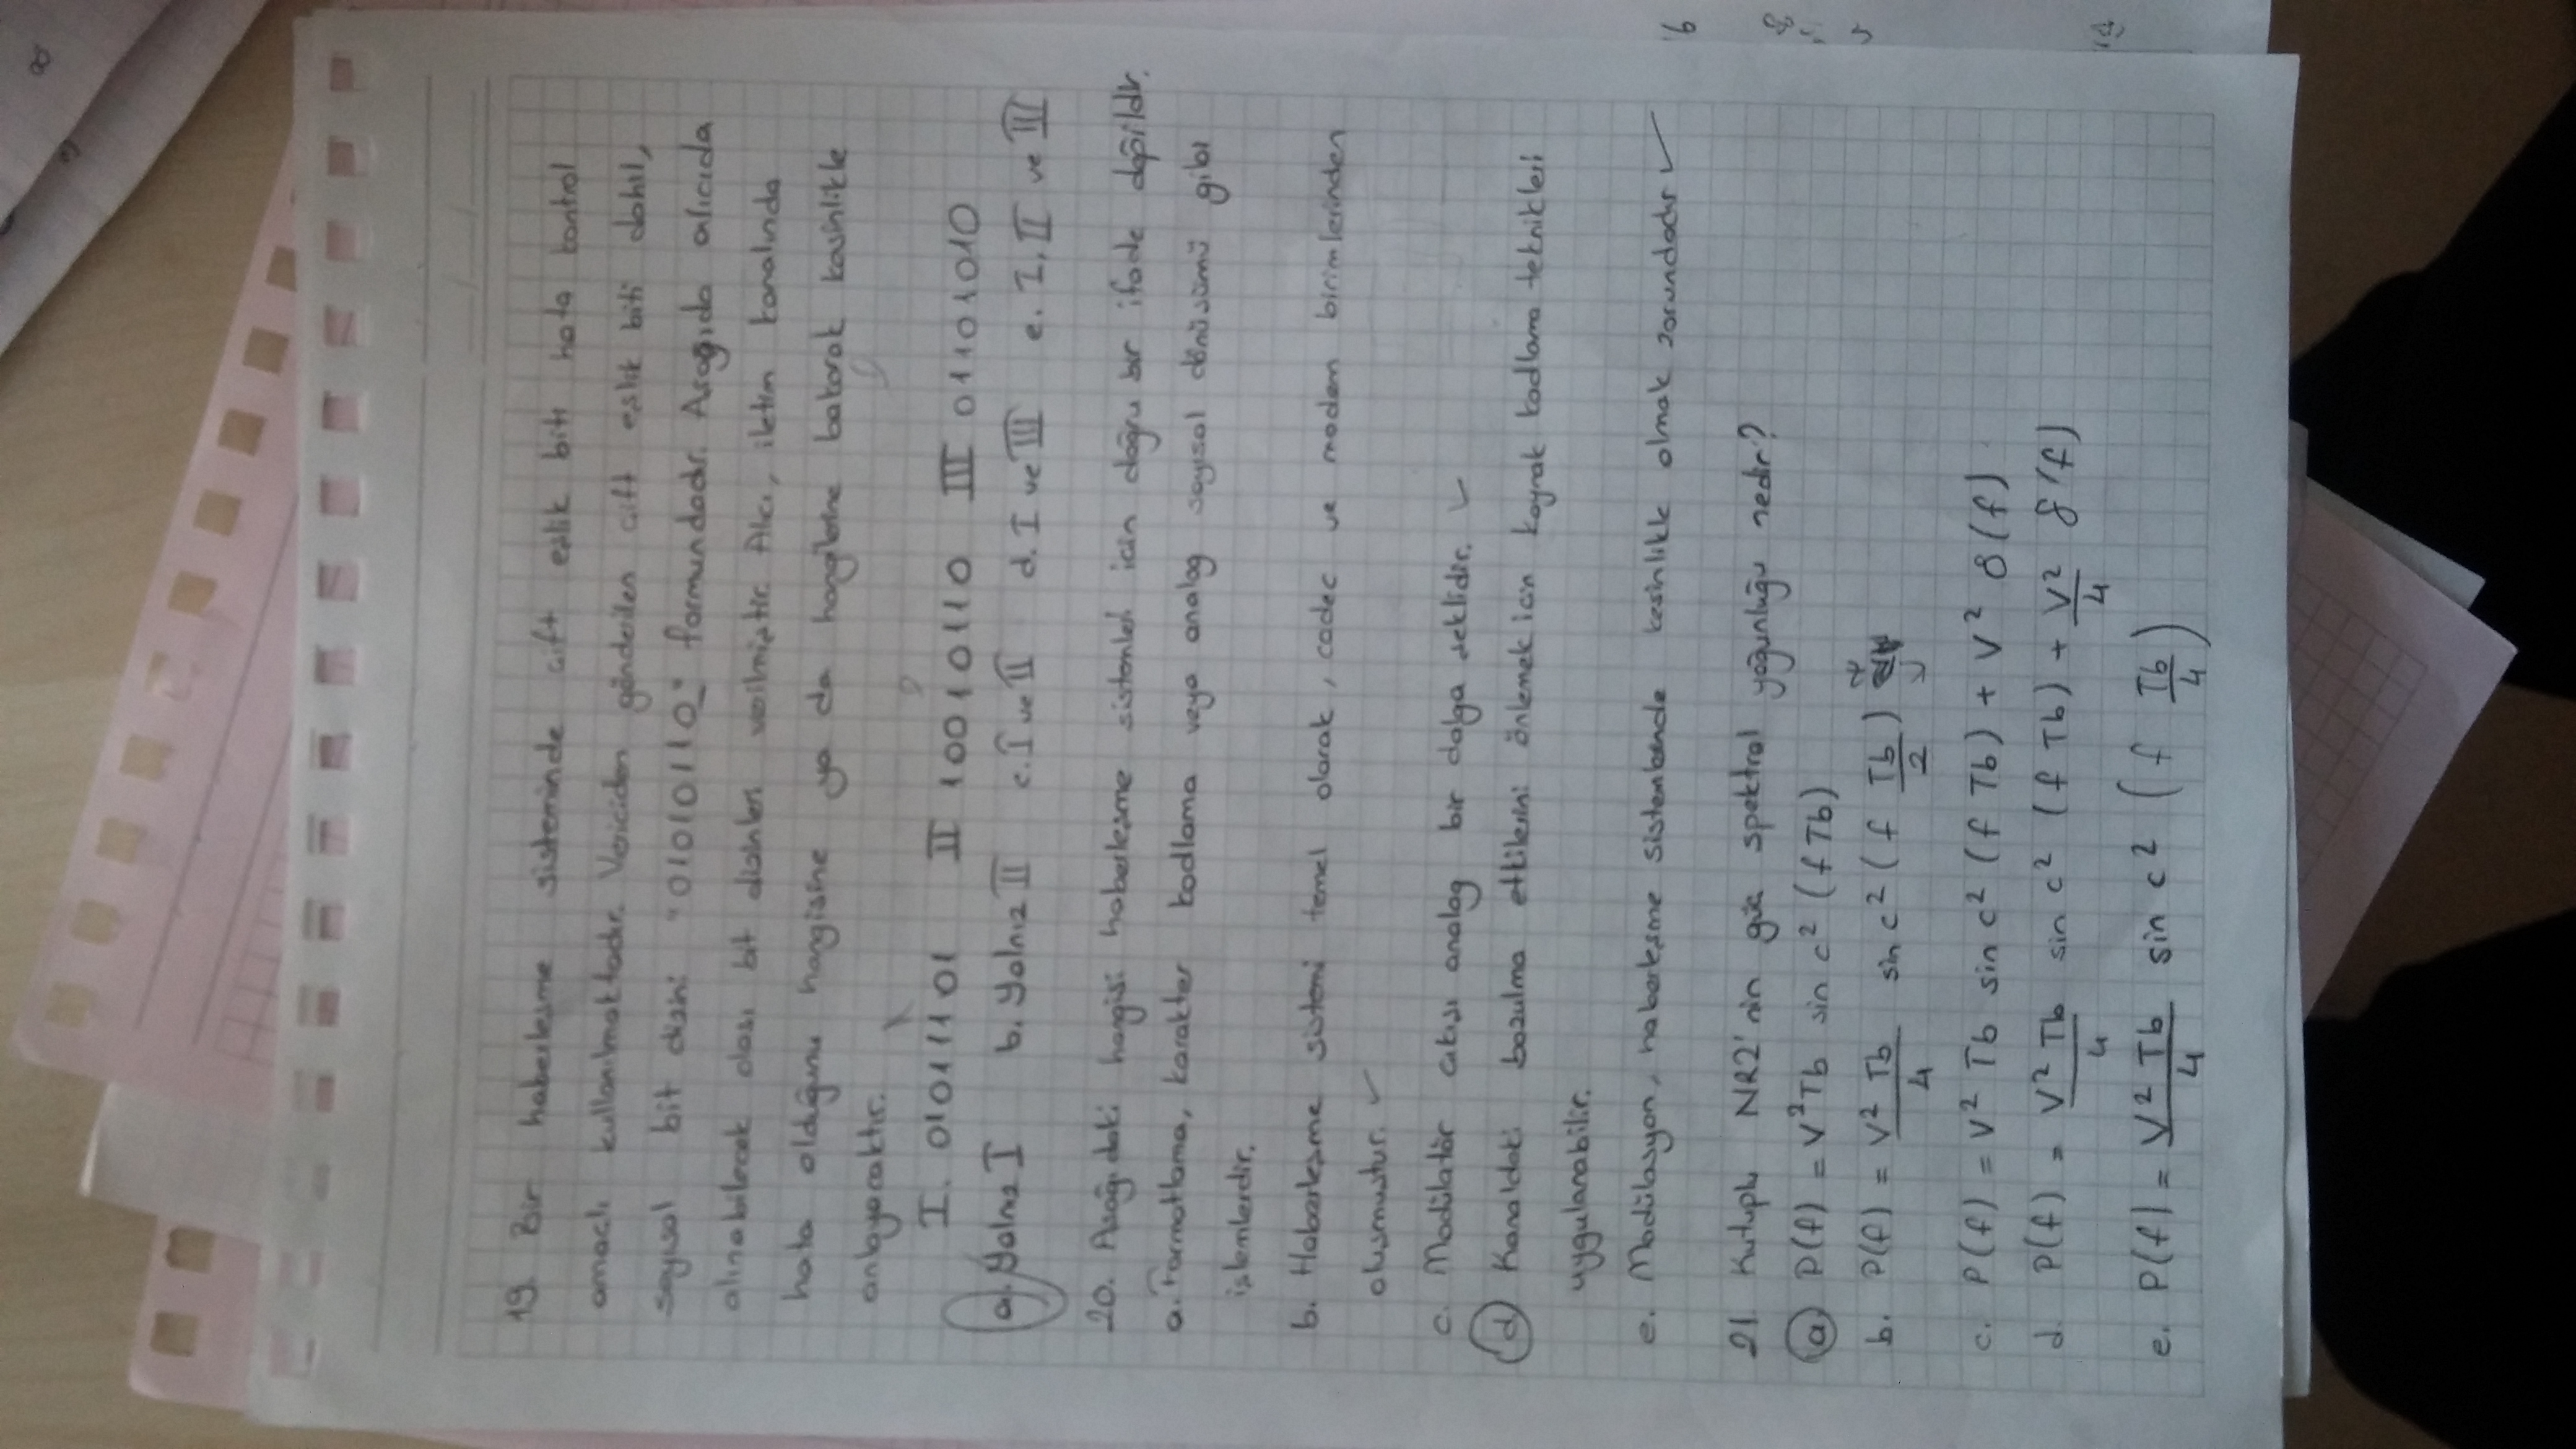 19. Bir haberleşme sisteminde çift eşlik biti hata kontrol
amaçlı kullanılmaktadır. Vericiden gönderilen çift eşlik biti dahil,
sayısal bit dizini "01010110" formundadır. Aşağıda alıcıda
alınabilecek olası bit dizinleri verilmiştir. Alıcı, iletim kanalında
hata olduğunu hangisine ya da hangilerine bakarak kesinlikle
anlayacaktır.
I. 01011101 II 10010110 III 01101010
a. Yalnız I b. Yalnız II c. I ve II d. I ve III e. I, II ve III
20. Aşağıdaki hangisi haberleşme sistemleri için doğru bir ifade değildir.
a. Formatlama, karakter kodlama veya analog sayısal dönüşümü gibi
işlemlerdir.
b. Haberleşme sistemi temel olarak, codec ve modem birimlerinden
oluşmuştur. ✓
c. Modülatör çıkışı analog bir dalga şeklidir. ✓
d. Kanaldaki bozulma etkilerini önlemek için kaynak kodlama teknikleri
uygulanabilir.
e. Modülasyon, haberleşme sistemlerinde kesinlikle olmak zorundadır ✓
21 Kutuplu NRZ'nin güç spektral yoğunluğu nedir?
a) P(f) = V² Tb sin c² (f Tb)
b. P(f) = V² Tb / 4 sin c² (f Tb / 2)
c. P(f) = V² Tb sin c² (f Tb) + V² δ(f)
d. P(f) = V² Tb / 4 sin c² (f Tb) + V² / 4 δ(f)
e. P(f) = V² Tb / 4 sin c² (f Tb / 4)